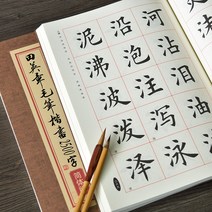 田英章毛筆楷書3500字
简体
泥 沿 河
沸 泡 沾
波 注 泪
泼 泻 油
泽 泳 泊